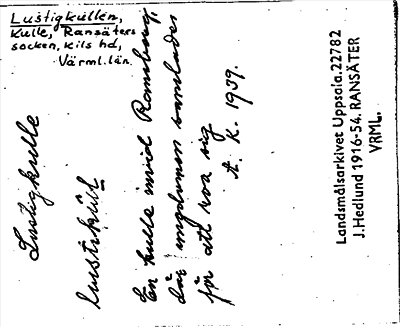 Lustigkullen,
Kulle, Ransäters
socken, Kils hd,
Värml. län.
Lustigkulle
En kulle invid Ramberg,
där ungdomen samlades
för att roa sig
A. K. 1939.
Landsmålsarkivet Uppsala. 22782
J. Hedlund 1916-54. RANSÄTER
VRML.